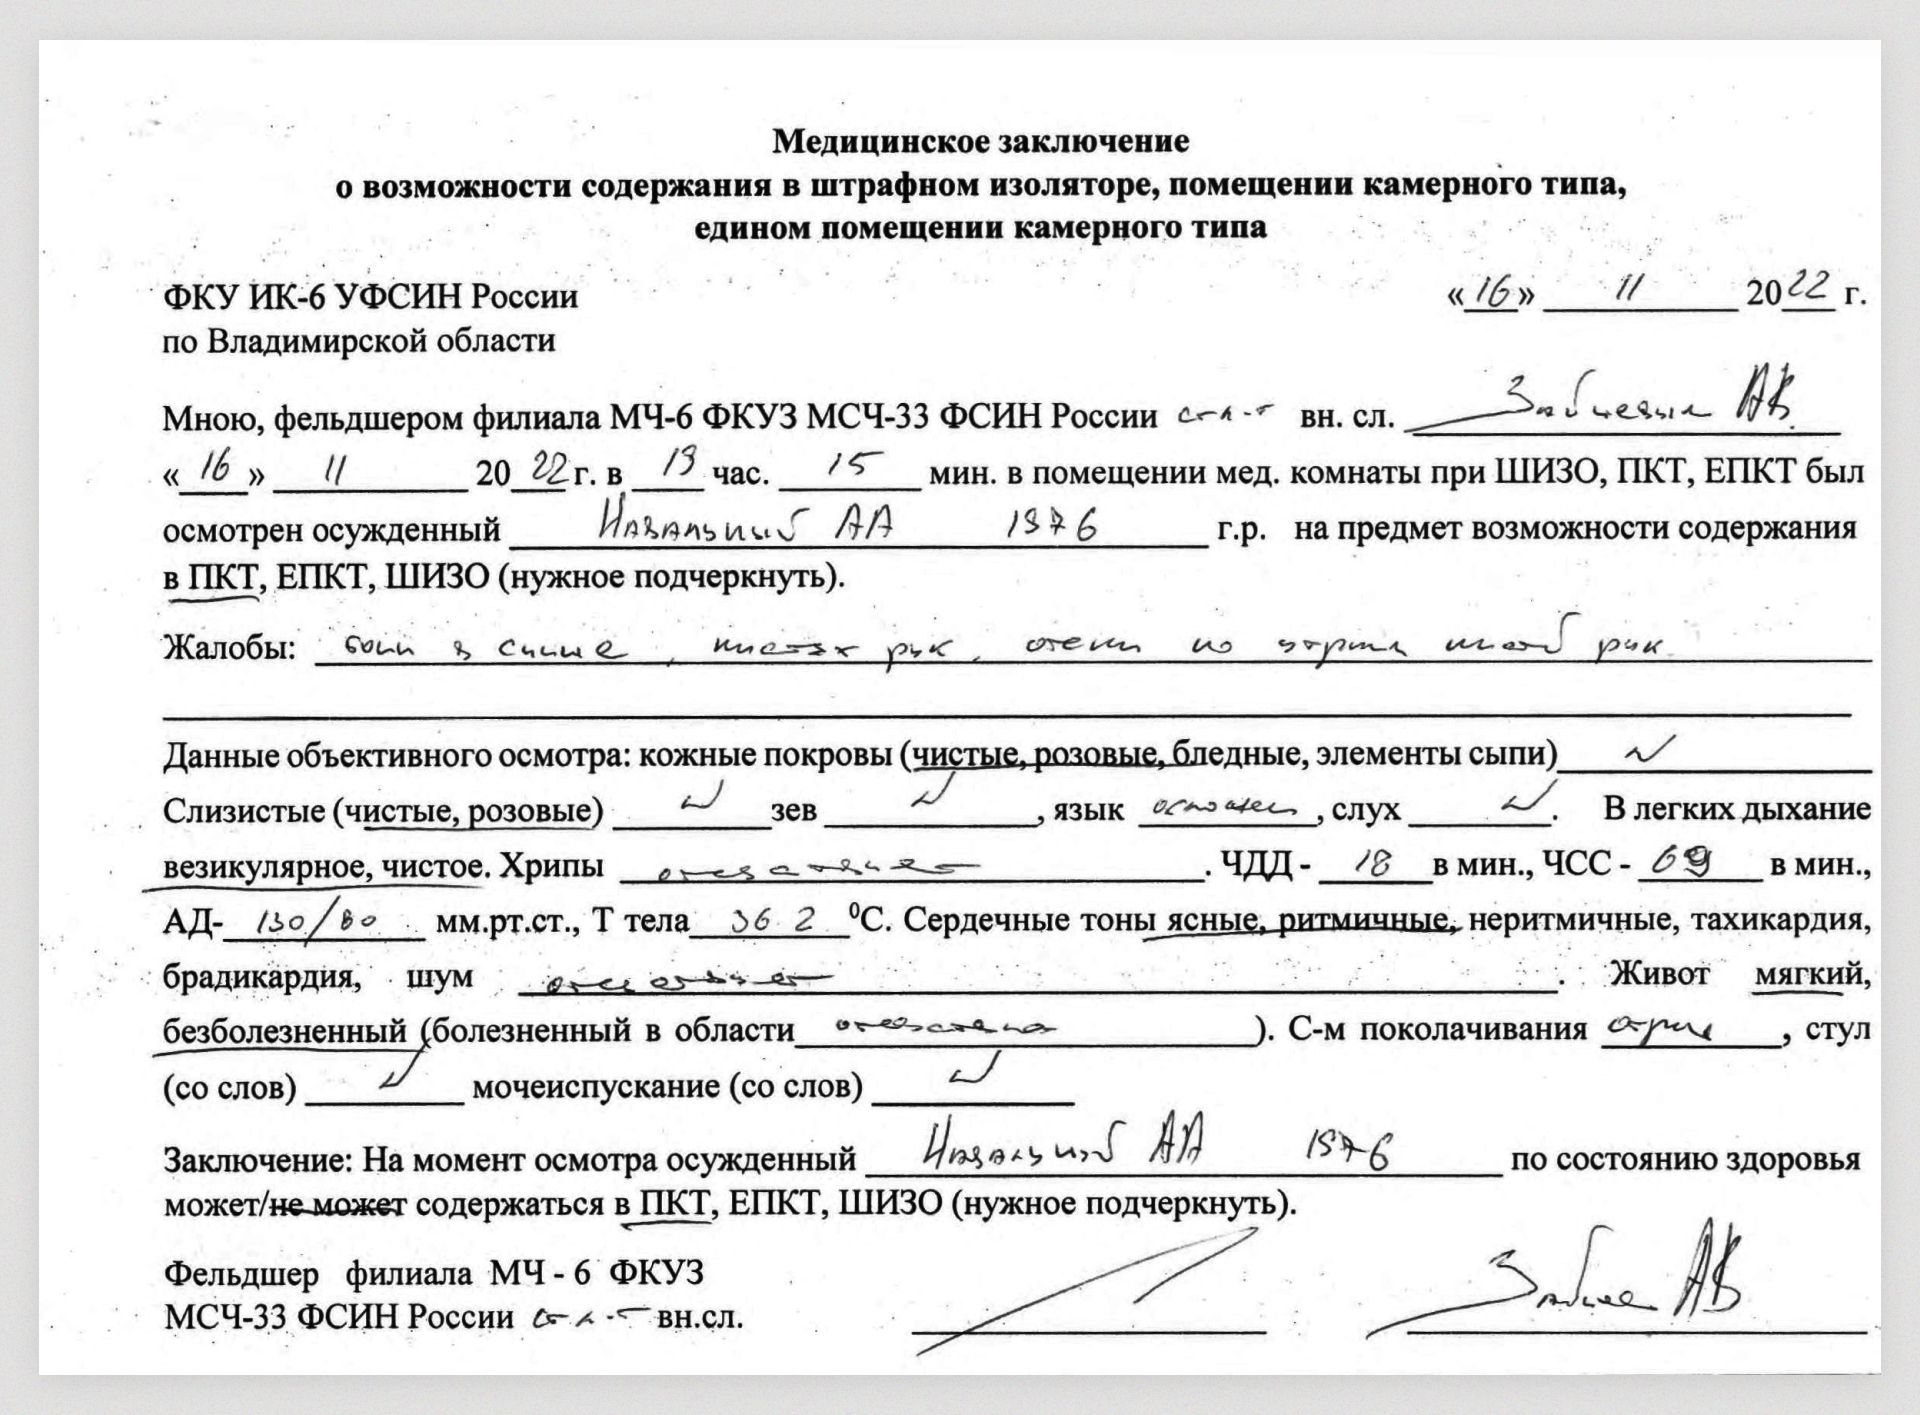 Медицинское заключение
о возможности содержания в штрафном изоляторе, помещении камерного типа,
едином помещении камерного типа
ФКУ ИК-6 УФСИН России «16» 11 2022 г.
по Владимирской области
Мною, фельдшером филиала МЧ-6 ФКУЗ МСЧ-33 ФСИН России ст. л-т вн. сл. АВ
«16» 11 2022 г. в 19 час. 15 мин. в помещении мед. комнаты при ШИЗО, ПКТ, ЕПКТ был
осмотрен осужденный Навальный АА 1976 г.р. на предмет возможности содержания
в ПКТ, ЕПКТ, ШИЗО (нужное подчеркнуть).
Жалобы: боли в спине, кистях рук, отеки по утрам кистей рук
Данные объективного осмотра: кожные покровы (чистые, розовые, бледные, элементы сыпи) N
Слизистые (чистые, розовые) N зев N, язык обложен, слух N. В легких дыхание
везикулярное, чистое. Хрипы отсутствуют. ЧДД - 18 в мин., ЧСС - 69 в мин.,
АД- 130/80 мм.рт.ст., Т тела 36 2 ⁰С. Сердечные тоны ясные, ритмичные, неритмичные, тахикардия,
брадикардия, шум отсутствует. Живот мягкий,
безболезненный (болезненный в области ). С-м поколачивания отриц, стул
(со слов) N мочеиспускание (со слов) N
Заключение: На момент осмотра осужденный Навальный АА 1976 по состоянию здоровья
может/не может содержаться в ПКТ, ЕПКТ, ШИЗО (нужное подчеркнуть).
Фельдшер филиала МЧ - 6 ФКУЗ
МСЧ-33 ФСИН России ст. л-т вн.сл. АВ